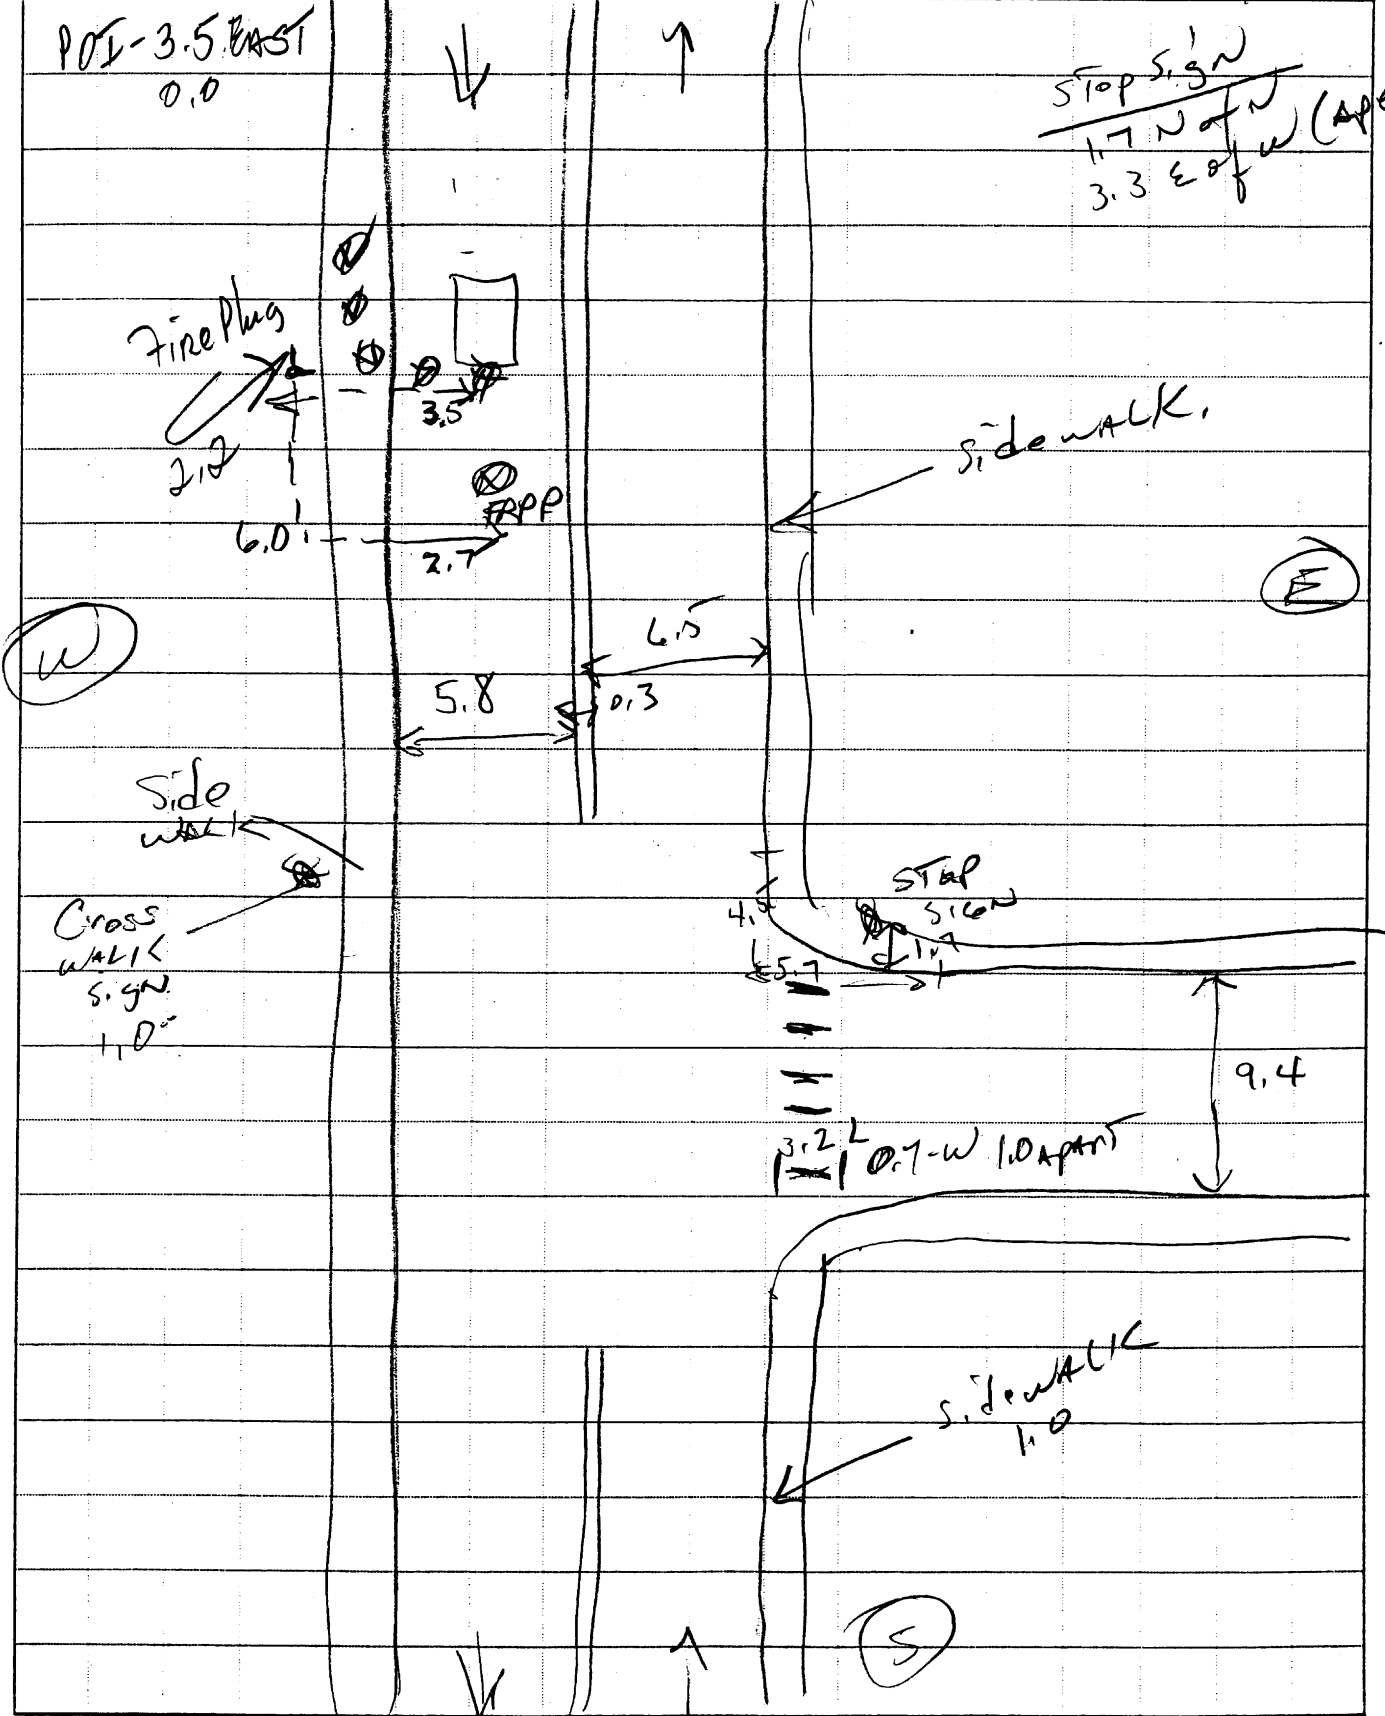 POI-3.5 EAST
0.0
STOP SigN
1.7 N of N
3.3 E of W (Ape
Fire Plug
2.2
3.5
FRPP
6.0'
2.7
SidewALK.
E
W
6.5
0.3
5.8
Side
WALK
Cross
WALK
SigN
1.0
STOP
SIGN
4.5
1.7
5.7
9.4
3.2 L 0.7-W 1.0 APART
SidewALK
1.0
S